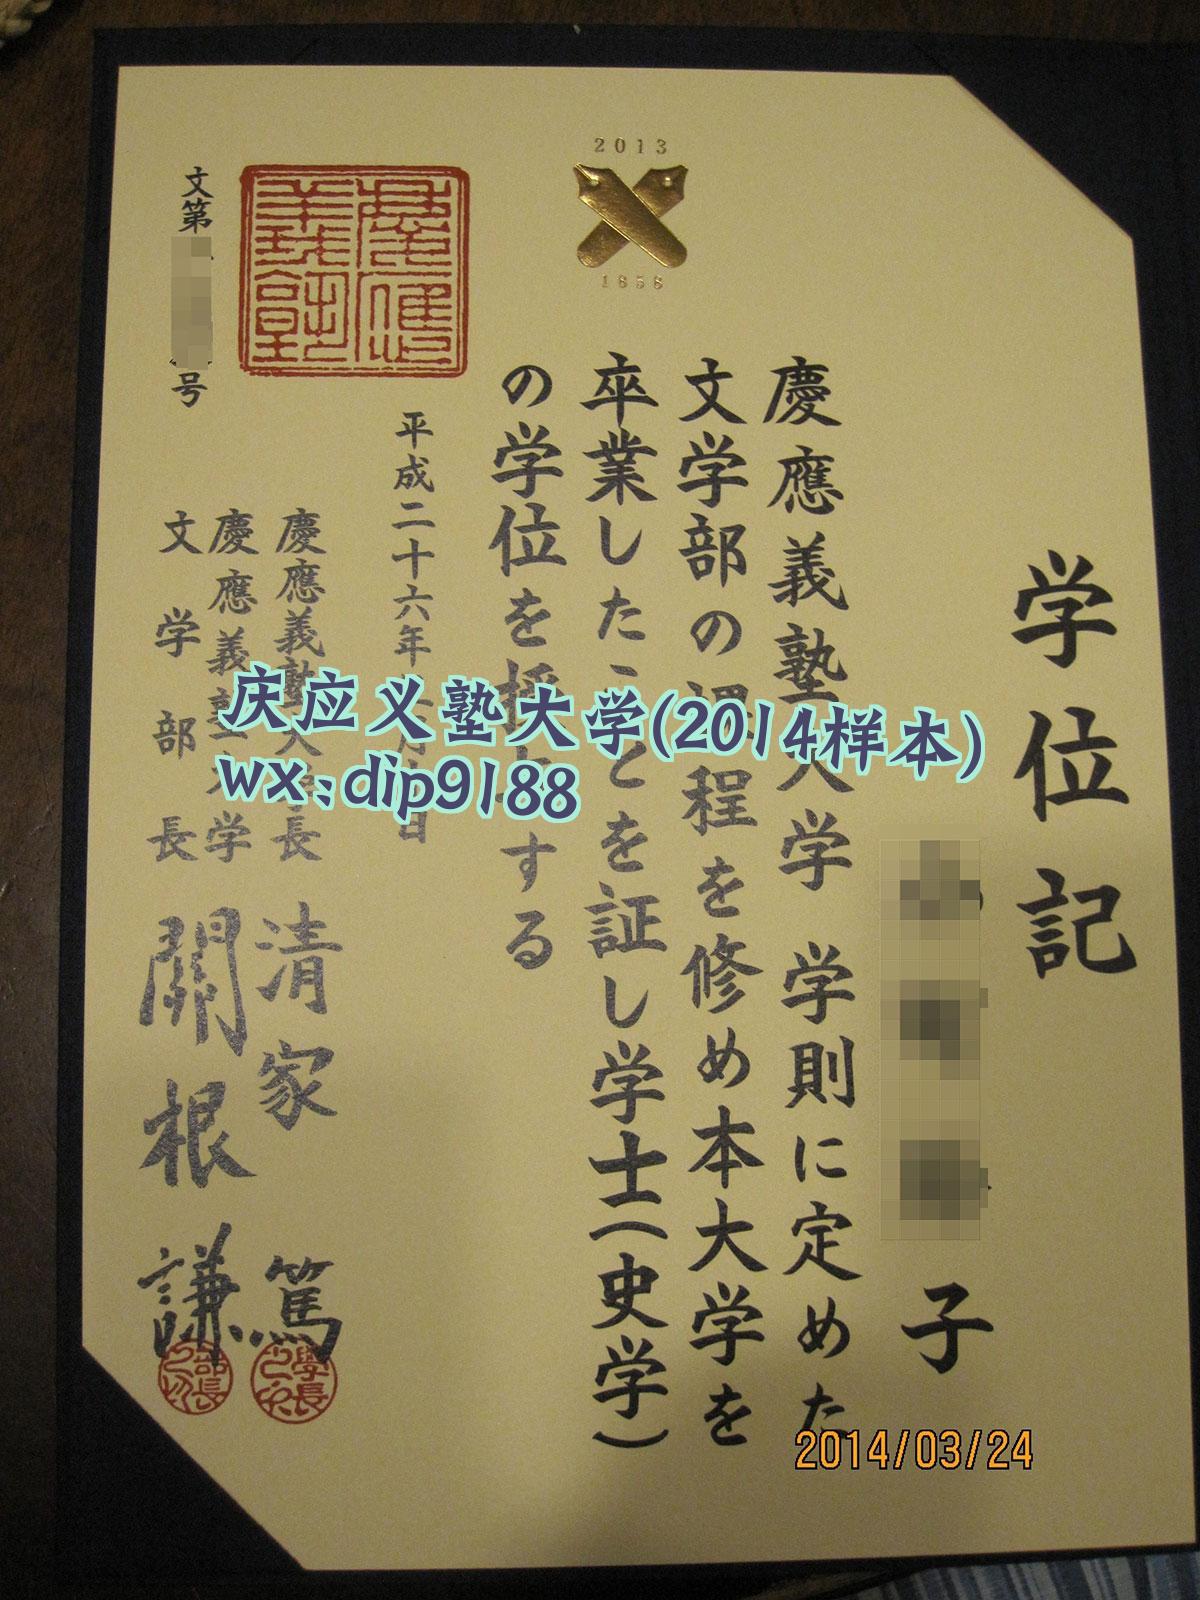 学位記
子
慶應義塾大学 学則に定めた
文学部の課程を修め本大学を
卒業したことを証し学士(史学)
の学位を授与する
平成二十六年 月 日
慶應義塾長 清家 篤
慶應義塾大学
文学部長 關根 謙
文第 号
2013
1858
慶應義塾
學長
部長
庆应义塾大学(2014样本)
wx:dip9188
2014/03/24